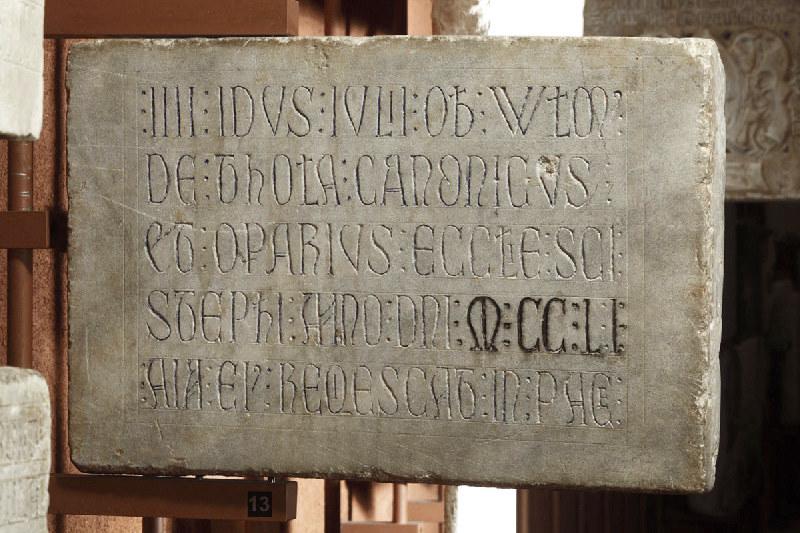 :IIII:IDVS:IVLII:OB:WLM
DE:THOLA:CANONICVS
ET:OPARIVS:ECCLE:SCI
STEPHI:ANNO:DNI:M:CC:LI
:AIA:EI:REQESCAT:IN:PACE:
13